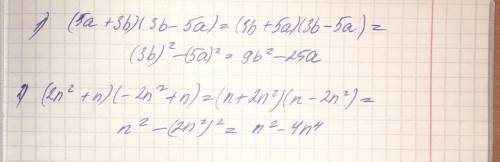 1) (5a+3b)(3b-5a)=(3b+5a)(3b-5a)=
(3b)²-(5a)²=9b²-25a
2) (2n²+n)(-2n²+n)=(n+2n²)(n-2n²)=
n²-(2n²)²= n²-4n⁴